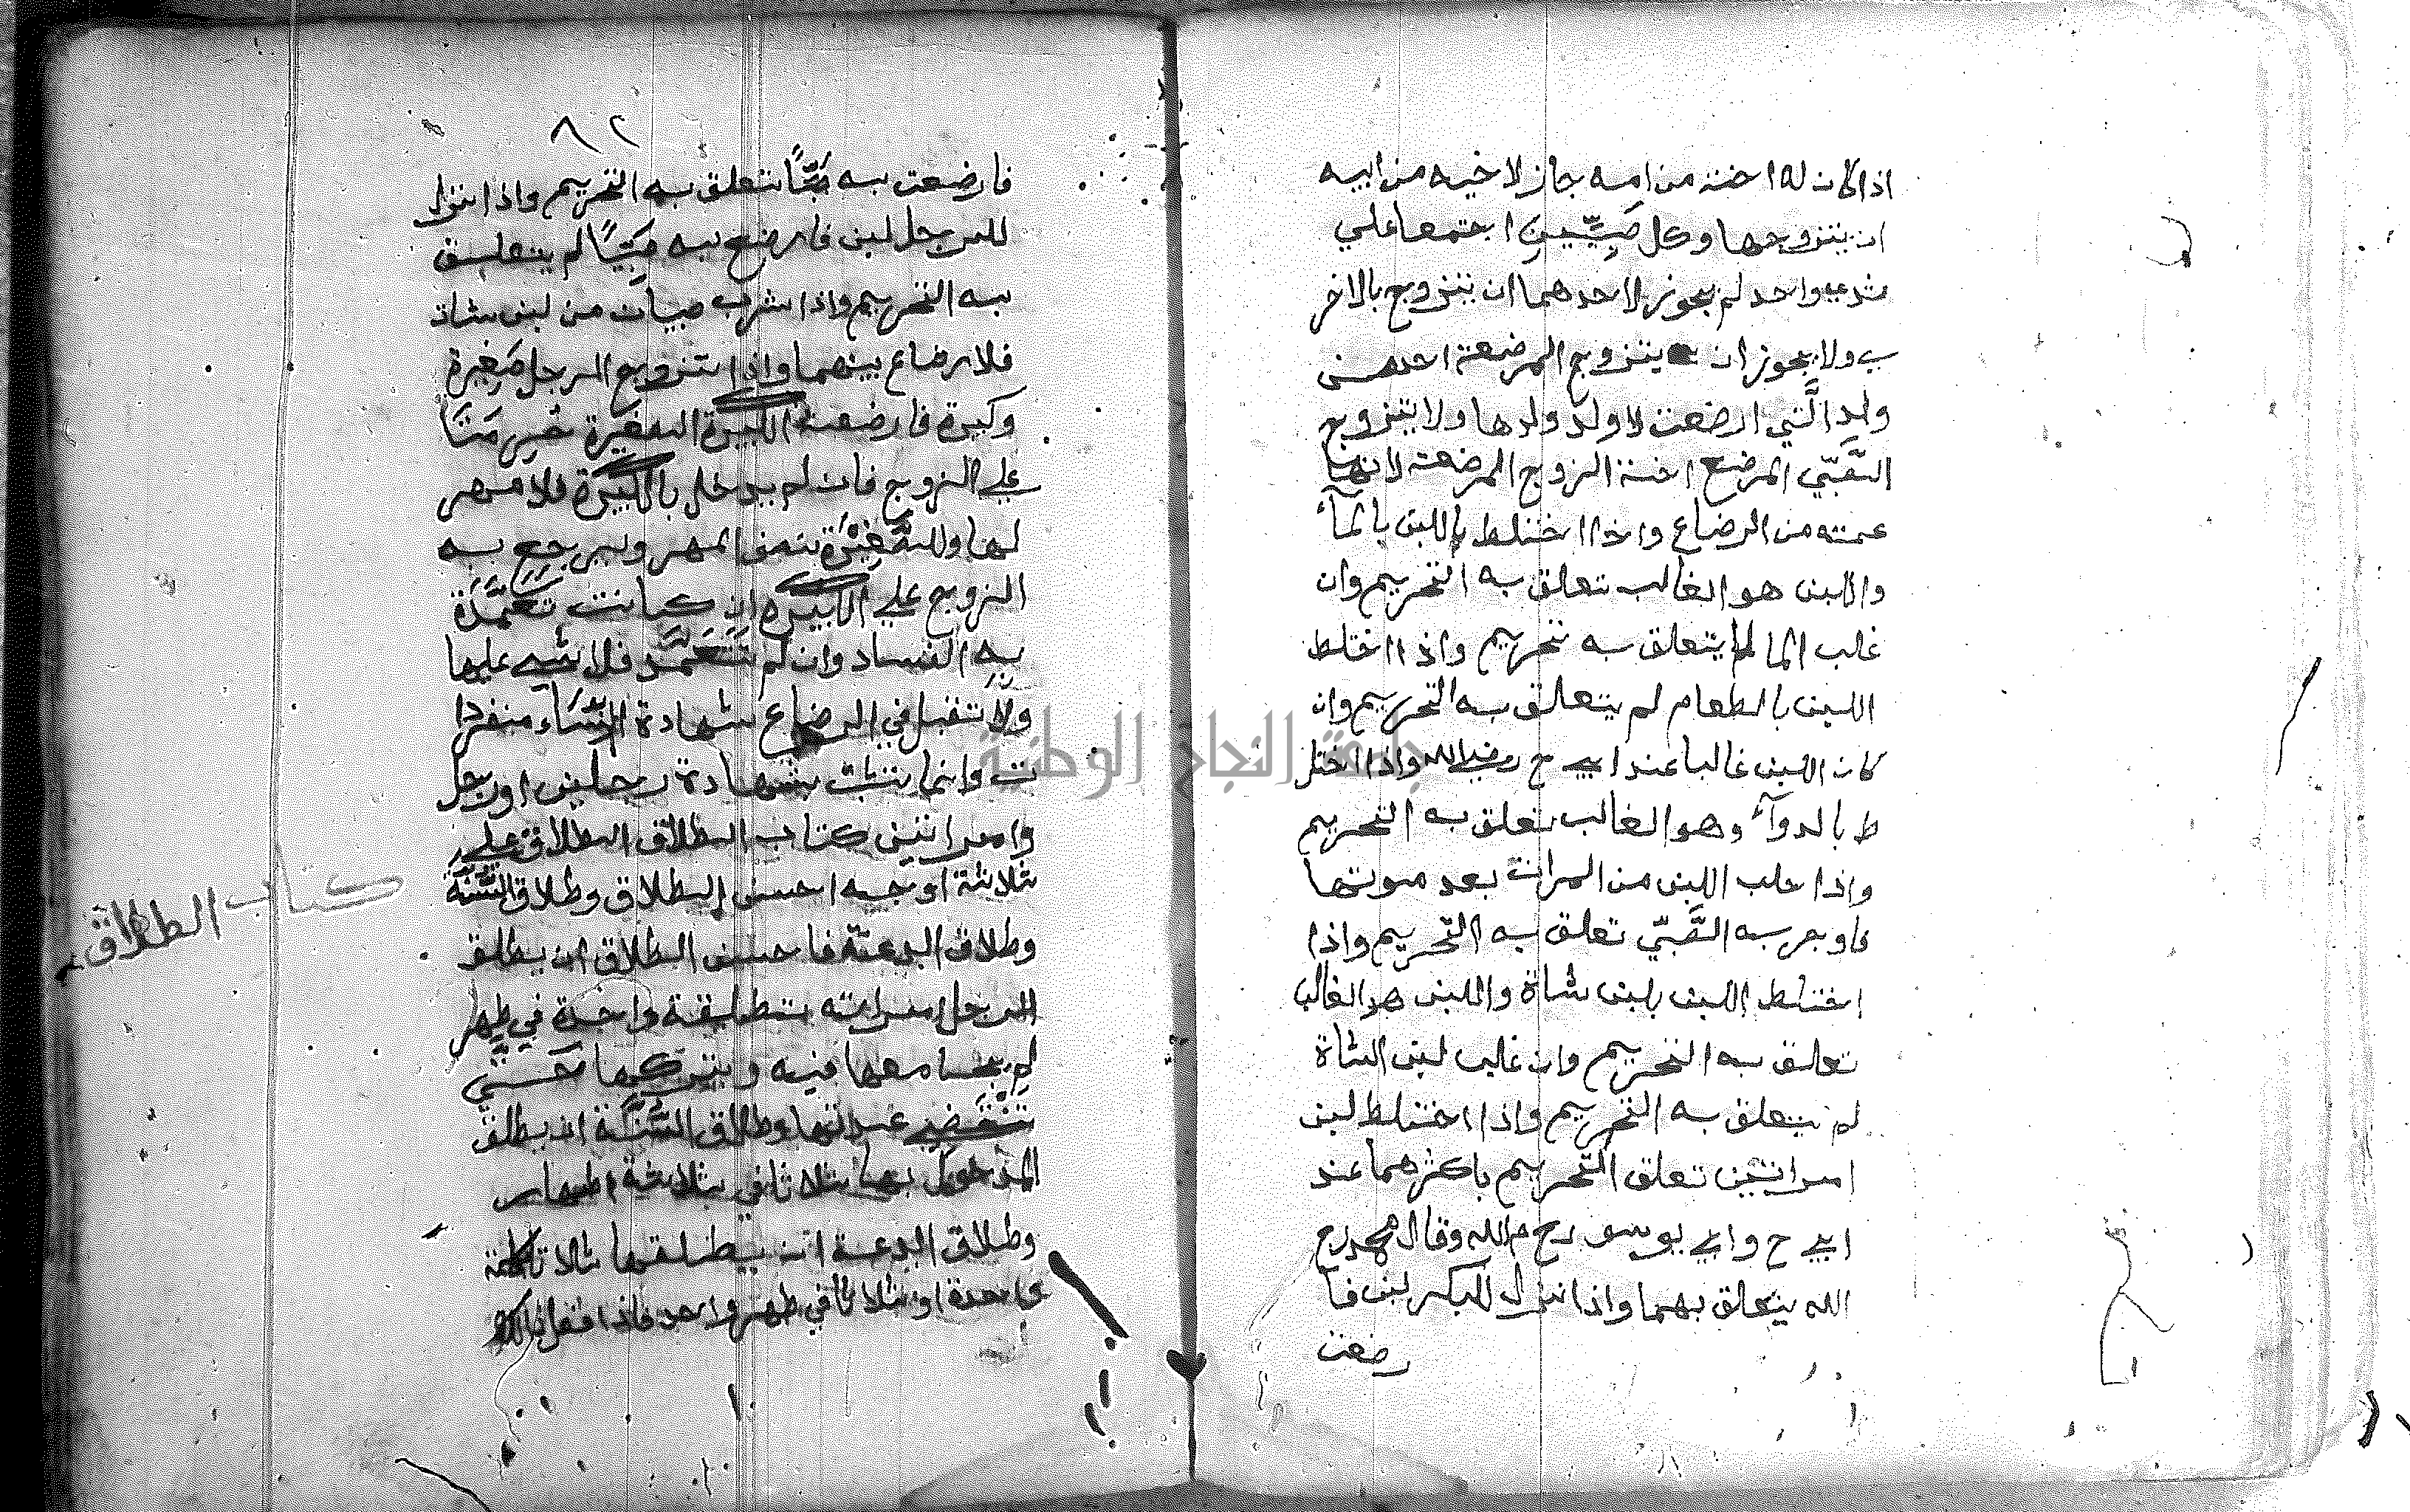 اذا كان له اخت من امه جاز لاخيه من ابيه
ان يتزوجها وكل صَبِيّينِ اجتمعا علي
ثدي واحد لم يجوز لاحدهما ان يتزوج بالاخر
ي ولا يجوز ان يتزوج المرضعة احد من
ولد الَّتي ارضعت لا ولد ولدها ولا يتزوج
الصَّبّي المرضع اخت الزوج المرضعة لانها
عمته من الرضاع واذا اختلط باللبن بالمآء
واللبن هو الغالب تعلق به التحريم وان
غلب الما لم يتعلق به تحريم واذا اختلط
اللبن بالطعام لم يتعلق به التحريم وان
كان اللبن غالبا عند ابي ح رضي الله واذا اختل
ط بالدوآء وهو الغالب تعلق به التحريم
واذا حلب اللبن من المرات بعد موتها
فاوجر به الصَّبّي تعلق به التحريم واذا
اختلط اللبن بلبن شاة واللبن هو الغالب
تعلق به التحريم وان غلب لبن الشاة
لم يتعلق به التحريم واذا اختلط لبن
امراتين تعلق التحريم باكثرهما عند
ابي ح وابي يوسو رحم الله وقال محمد رح
الله يتعلق بهما واذا نزل للبكر لبن فا
رضعت
٨٢
فارضعت به صَبِيًّا يتعلق به التحريم واذا نزل
للرجل لبن فارضع به صَبِيًّا لم يتعلق
به التحريم واذا شرب صبيان من لبن شاة
فلا رضاع بينهما واذا تزوج الرجل صَغِيرة
وكبيرة فارضعت الكبيرة الصغيرة حَرِمَتَا
علي الزوج فان لم يدخل بالكبيرة فلا مهر
لها وللصَّغِيْرَة نصف المهر ويرجع به
الزوج علي الكبيرة ان كانت تَعَمَّدَة
بِهِ الفساد وان لم تَتَعَمَّد فلا شي عليها
ولا تقبل في الرضاع شهادة النِّسَآء منفردا
ت وانما يثبت بشهادة رجلين او رجل
وامراتين كتاب الطلاق الطلاق علي
ثلاثة اوجه احسن الطلاق وطلاق السُّنَّة
وطلاق البدعة فاحسن الطلاق ان يطلق
الرجل امراته تطليقة واحدة في طهر
لم يجامعها فيه ويتركها حَتَّي
تَنْقَضِي عدتها وطلاق السُّنَّة ان يطلق
المدخول بها ثلاثا في ثلاثة اطهار
وطلاق البدعة ان يطلقها ثلاثا بكلمة
واحدة او ثلاثا في طهر واحد فاذا فعل ذالك
كتاب الطلاق
جامعة النجاح الوطنية